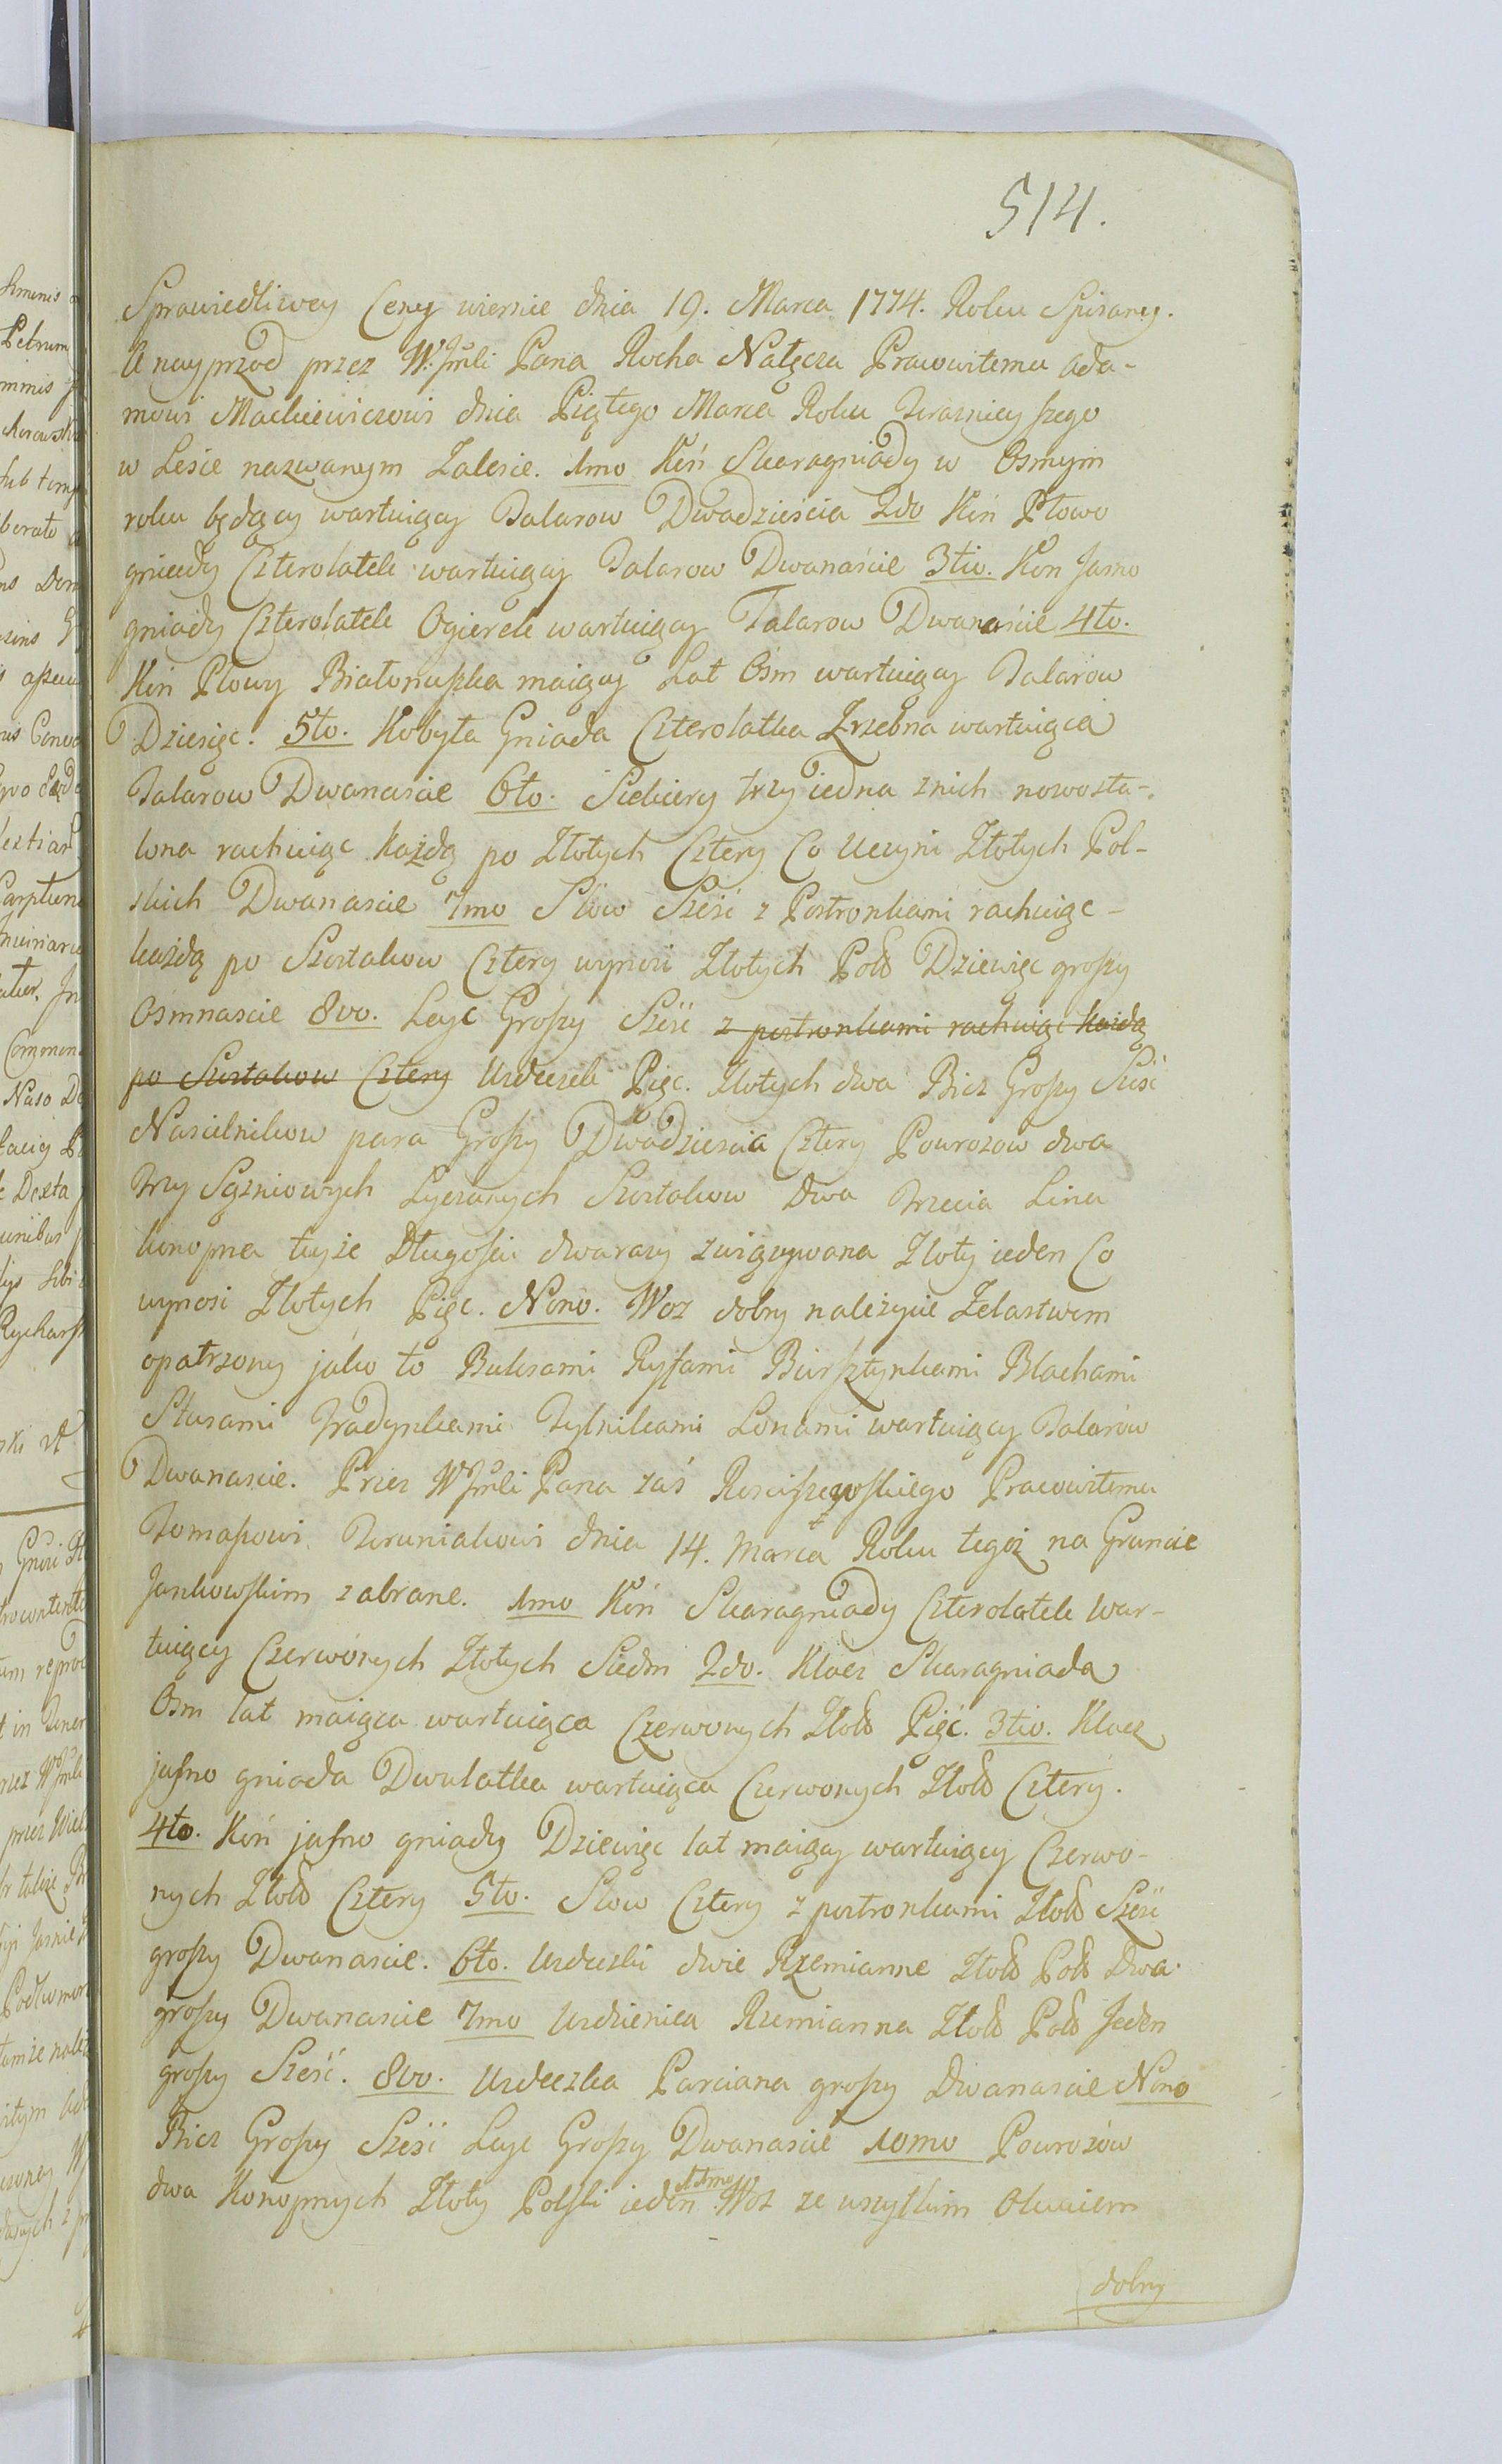 514.
Sprawiedliwey Ceny wiernie dnia 19. Marca 1774. Roku Spisany.
A nayprzod przez W. Jmći Pana Rocha Nałęcza Pracowitemu Ada-
mowi Mackiewiczowi dnia Piątego Marca Roku Teraznieyszego
w Lesie nazwanym Zalesie. 1mo Koń Skaragniady w Osmym
roku będący wartuiący Talarow Dwadzieścia 2do Koń Płowo
gniady Czterolatek wartuiący Talarow Dwanaście 3tio. Kon Jasno
gniady Czterolatek Ogierek wartuiący Talarow Dwanaście 4to.
Koń Płowy Białonuszka maiący Lat Ośm wartuiący Talarow
Dziesięc. 5to. Kobyła Gniada Czterolatka Zrzebna wartuiąca
Talarow Dwanascie 6to. Siekiery trzy iedna znich nowosta-
lona rachuiąc każdą po Złotych Cztery Co Uczyni Złotych Pol-
skich Dwanascie 7mo Slow Sześć z Postronkami rachuiąc -
każdą po Szostakow Cztery wynosi Złotych Pols Dziewięc groszy
Osmnascie 8vo. Leyc Groszy Sześć z postronkami rachuiąc każdą
po Szostakow Cztery Uzdeczek Pięc. Złotych dwa Bicz Groszy Sześć
Nasielnikow para Groszy Dwadziescia Cztery Powrozow dwa
trzy Sążniowych Łyczanych Szostakow dwa trzecia Lina
konopna teyże Długości dwarazy związywana Złoty ieden Co
wynosi Złotych Pięc. Nono. Woz dobry należycie Zelastwem
opatrzony jako to Buksami Ryfami Bursztynkami Blachami
Sfusami Tradynkami Tylnikami Lonami wartuiący Talarow
Dwanascie. Przez W Jmći Pana zaś Rosciszewskiego Pracowitemu
Tomaszowi Toruniakowi dnia 14. Marca Roku tegoż na Gruncie
Jankowskim zabrane. 1mo Koń Skaragniady Czterolatek War-
tuiący Czerwonych Złotych Siedm 2do. Klacz Skaragniada
Ośm lat maiąca wartuiąca Czerwonych Złots Pięć. 3tio. Klacz
jasno gniada Dwulatka wartuiąca Czerwonych Złots Cztery.
4to. Koń jasno gniady Dziewięc lat maiący wartuiący Czerwo-
nych Złots Cztery 5to. Slow Cztery z postronkami Złots Sześć
groszy Dwanascie. 6to. Uzdeczki dwie Rzemianne Złots Pols Dwa
groszy Dwanascie 7mo Uzdzienica Rzemianna Złots Pols Jeden
groszy Sześć. 8vo. Uzdeczka Parciana groszy Dwanascie Nono
Bicz Groszy Sześć Leyc Groszy Dwanascie 10mo Powrozow
dwa Konopnych Złoty Polski ieden 11mo Woz ze wszytkim Okuciem
dobry